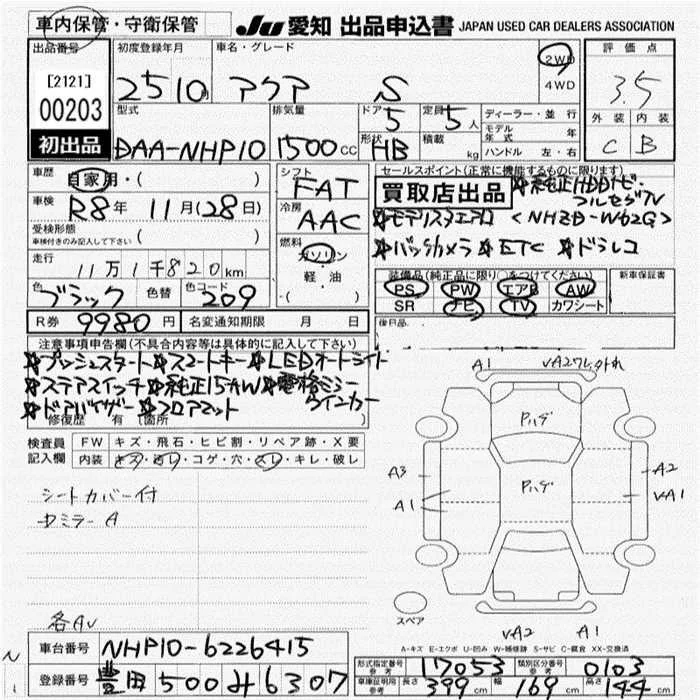 車内保管・守衛保管
JU 愛知 出品申込書 JAPAN USED CAR DEALERS ASSOCIATION
出品番号 初度登録年月 車名・グレード 評価点
[2121]
00203
初出品
25 10月 アクア S
2WD
4WD
3.5
外装 内装
C B
型式 排気量 ドア 定員 ディーラー・並行
DAA-NHP10 1500cc 5 5人
形状 積載 モデル年式 年
HB kg ハンドル 左・右
車歴 自家用・( )
車検 R8年 11月(28日)
受検形態
車検付きのみ記入して下さい ( )
走行
11万1千820km
色 色替 色コード
ブラック 209
シフト
FAT
冷房
AAC
燃料
ガソリン
軽・油
・( )
セールスポイント(正常に機能するものに限ります)
買取店出品 ☆純正HDDナビ・フルセグTV
☆モデリスタエアロ <NHZD-W62G>
☆バックカメラ ☆ETC ☆ドラレコ
装備品(純正品に限り○をつけてください) 新車保証書
PS PW エアB AW
SR ナビ TV カワシート
後日品
R券 9980円 名変通知期限 月 日
注意事項申告欄(不具合内容等は具体的に記入して下さい)
☆プッシュスタート☆スマートキー☆LEDオートライト
☆ステアスイッチ☆純正15AW☆電格ミラーウインカー
☆ドアバイザー☆フロアマット
修復歴 有 (箇所
検査員記入欄
FW キズ・飛石・ヒビ割・リペア跡・X要
内装 キズ・汚レ・コゲ・穴・スレ・キレ・破レ
シートカバー付
ミラーA
各AU
A1 UA2ワレ外れ
Pハゲ
Pハゲ
A3
A1
A2
UA1
スペア
UA2 A1
A-キズ E-エクボ U-凹み W-補修跡 S-サビ C-腐食 XX-交換済
車台番号 NHP10-6226415
登録番号 豊田 500み6307
形式指定番号 参考 17053 類別区分番号 参考 0103
車庫証明用 参考 長さ 399cm 幅 169cm 高さ 144cm